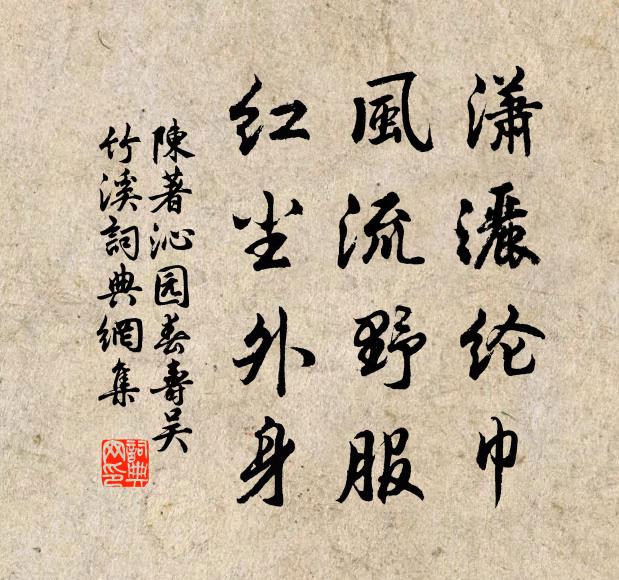 潇灑纶巾
風流野服
红尘外身
陳著沁园春壽吴
竹溪詞典網集
詞典
网印